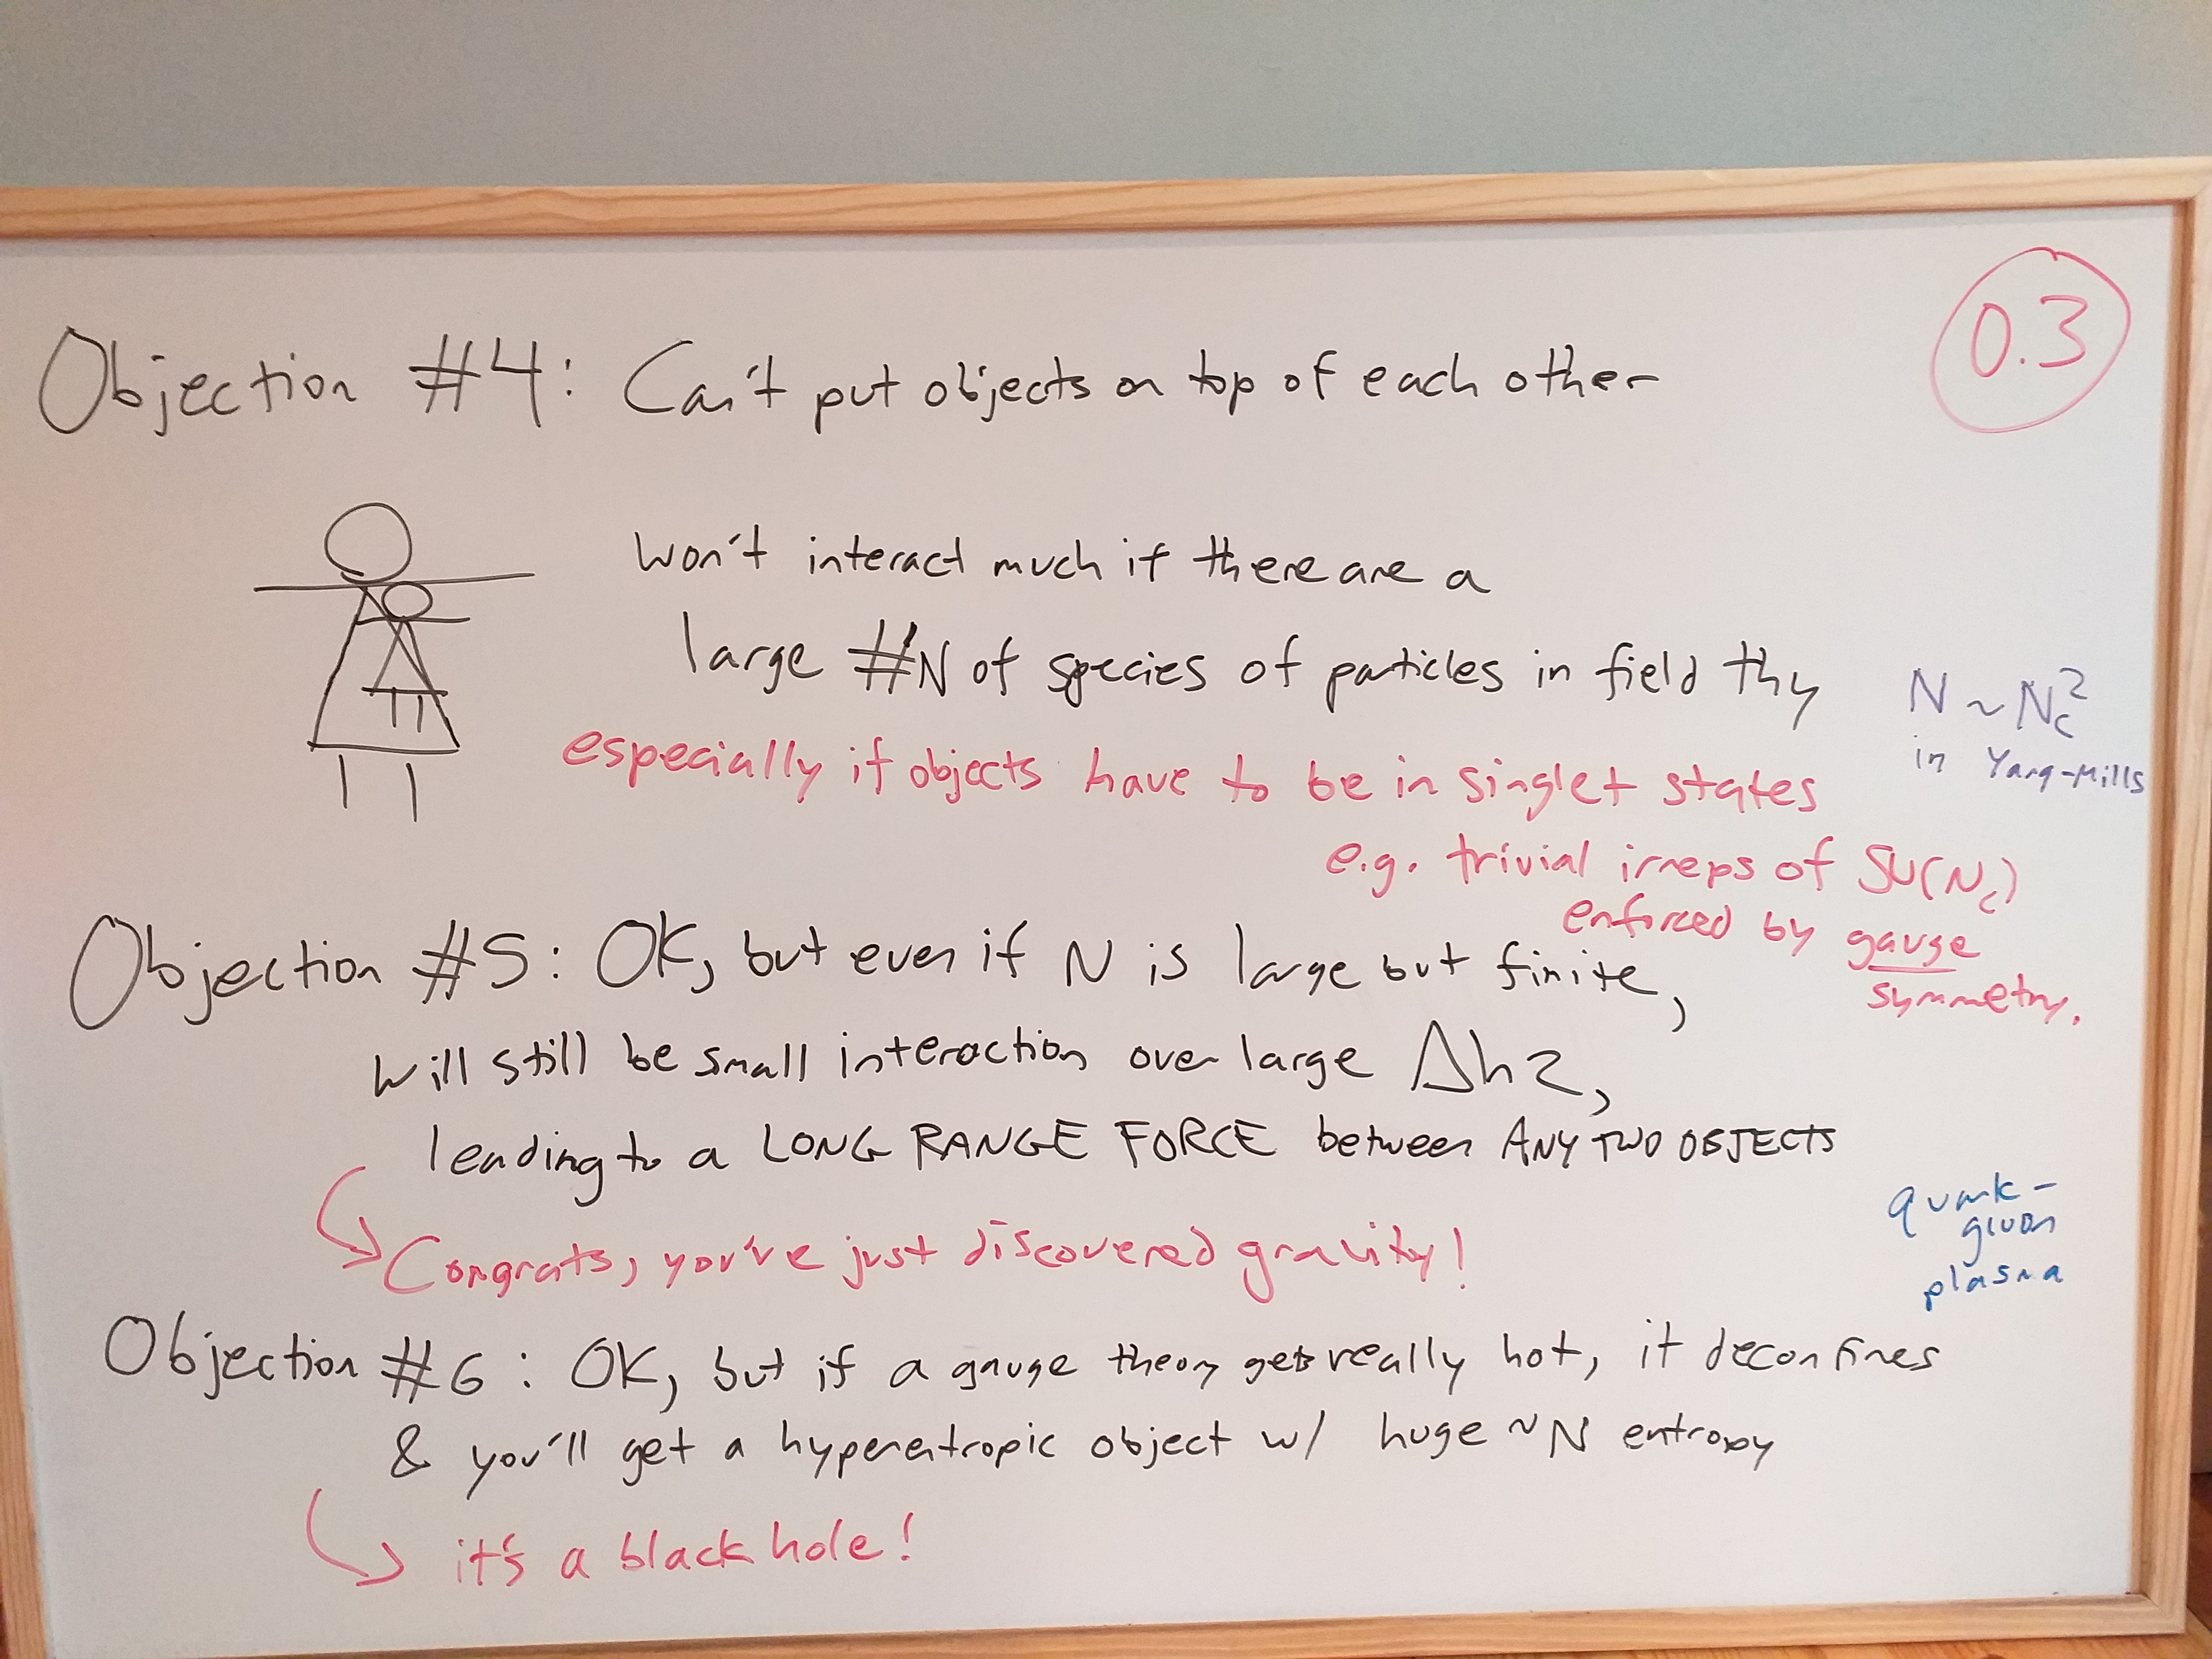 0.3
Objection #4: Can't put objects on top of each other
won't interact much if there are a
large #N of species of particles in field thy
N ~ N_c^2
in Yang-Mills
especially if objects have to be in singlet states
e.g. trivial irreps of SU(N_c)
enforced by gauge
symmetry.
Objection #5: OK, but even if N is large but finite,
will still be small interaction over large Δln z,
leading to a LONG RANGE FORCE between ANY TWO OBJECTS
Congrats, you've just discovered gravity!
quark-
gluon
plasma
Objection #6: OK, but if a gauge theory gets really hot, it deconfines
& you'll get a hyperentropic object w/ huge ~N entropy
it's a black hole!